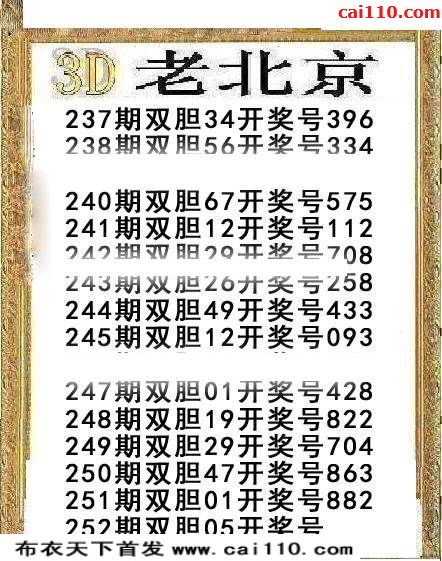 cai110.com
3D 老北京
237期双胆34开奖号396
238期双胆56开奖号334
240期双胆67开奖号575
241期双胆12开奖号112
242期双胆29开奖号708
243期双胆26开奖号258
244期双胆49开奖号433
245期双胆12开奖号093
247期双胆01开奖号428
248期双胆19开奖号822
249期双胆29开奖号704
250期双胆47开奖号863
251期双胆01开奖号882
252期双胆05开奖号
布衣天下首发 www.cai110.com